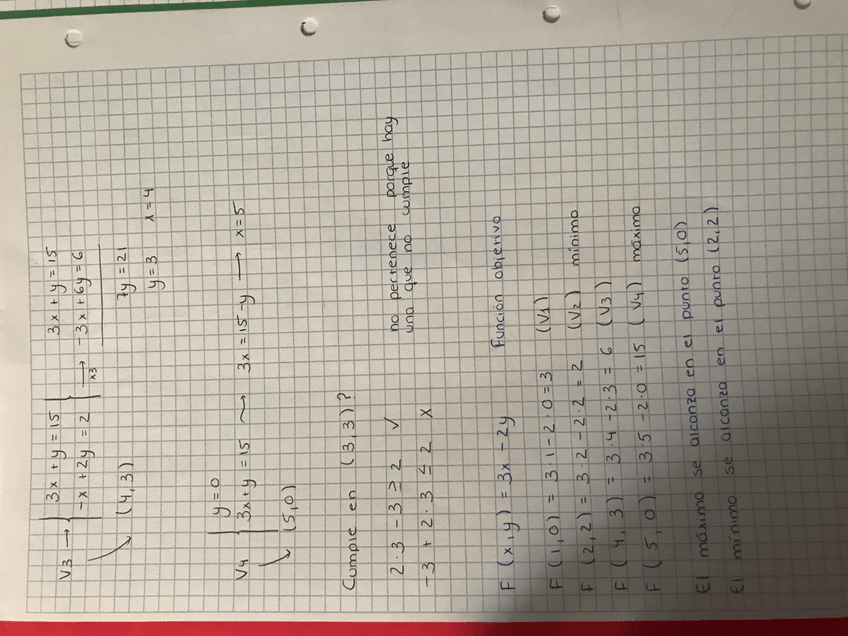 V3 → 3x + y = 15 3x + y = 15
-x + 2y = 2 → x3 -3x + 6y = 6
(4,3) 7y = 21
y = 3 x = 4
y = 0
V4 3x + y = 15 ~ 3x = 15 - y → x = 5
(5,0)
Cumple en (3,3)?
2·3 - 3 ≥ 2 ✓ no pertenece porque hay
-3 + 2·3 ≤ 2 X una que no cumple
F (x,y) = 3x - 2y Función objetivo
F (1,0) = 3·1 - 2·0 = 3 (V1)
F (2,2) = 3·2 - 2·2 = 2 (V2) mínimo
F (4,3) = 3·4 - 2·3 = 6 (V3)
F (5,0) = 3·5 - 2·0 = 15 (V4) máximo
El máximo se alcanza en el punto (5,0)
El mínimo se alcanza en el punto (2,2)